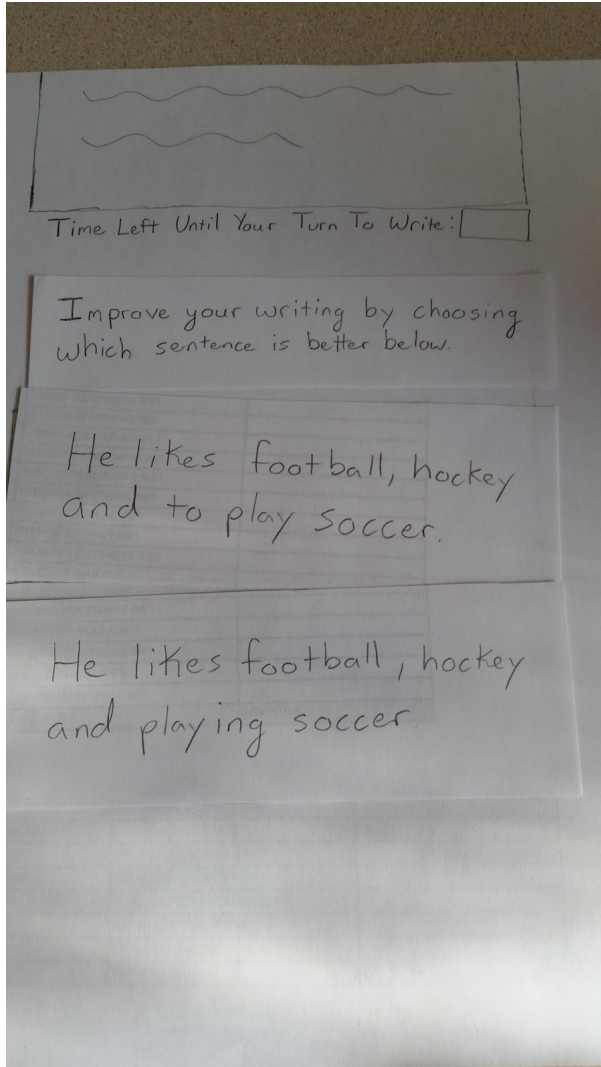 Time Left Until Your Turn To Write:
Improve your writing by choosing
which sentence is better below.
He likes football, hockey
and to play soccer.
He likes football, hockey
and playing soccer.